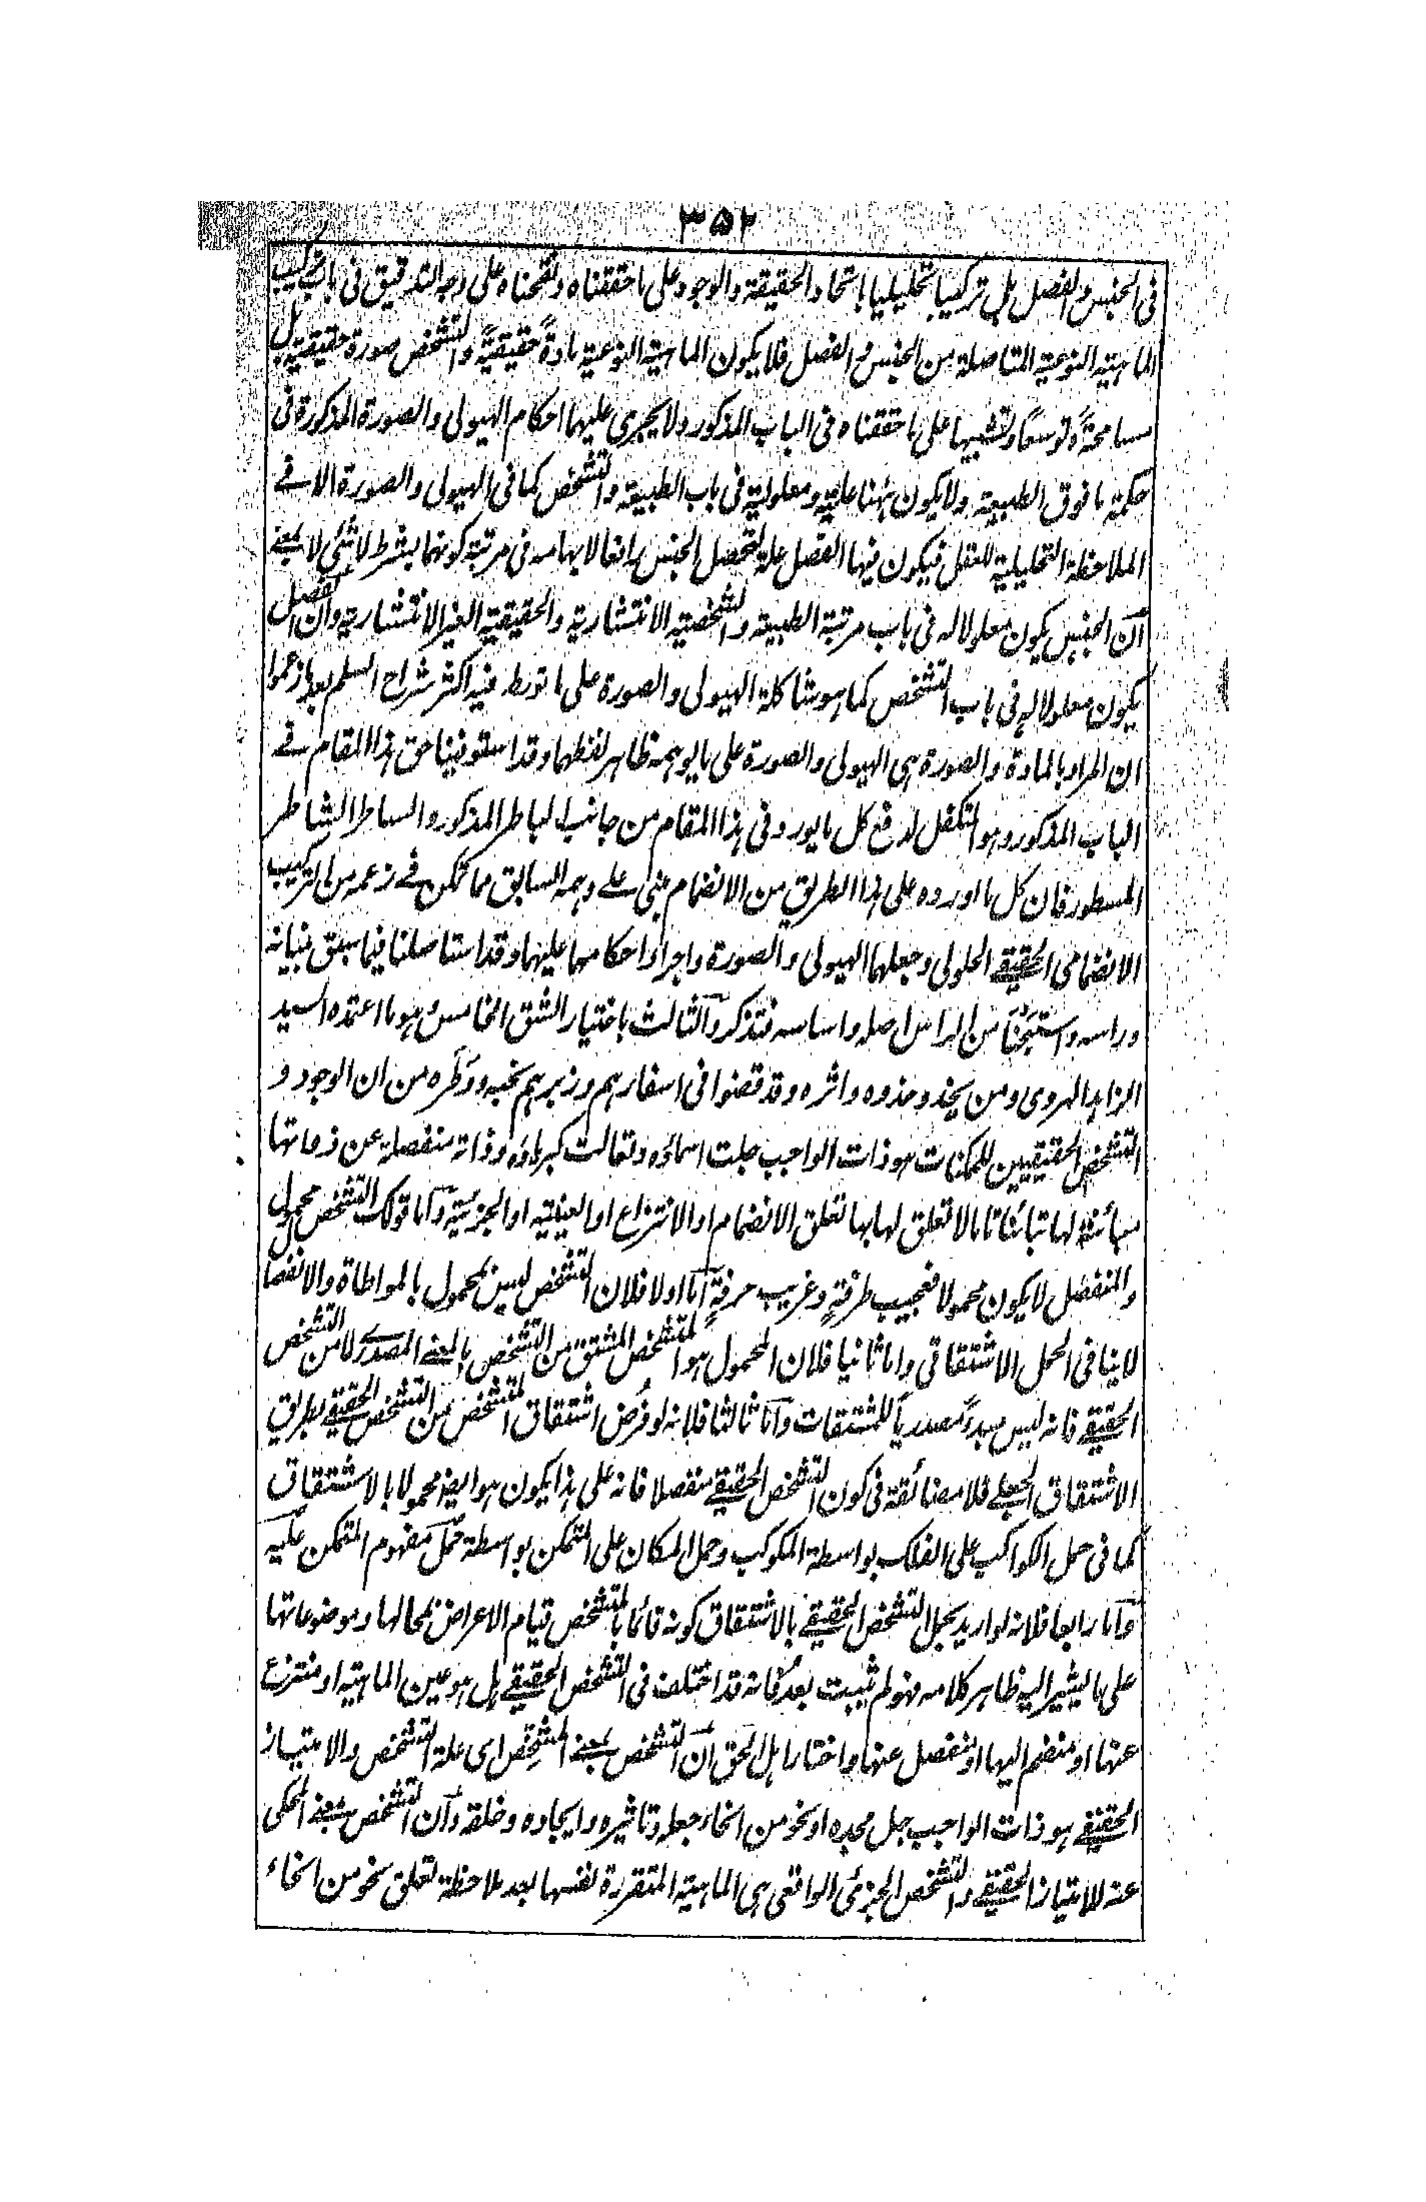 ٣٥٢
فى الجنس والفصل بل تركيبا تحليليا باتحاد الحقيقة والوجود على ما حققناه ونقحناه على وجه التدقيق فى باب تركيب
الماهية النوعية المتاصلة من الجنس والفصل فلا يكون الماهية النوعية مادةً حقيقيةً والتشخص صورة حقيقية بل
مسامحةً وتوسعًا وتشبيها على ما حققناه فى الباب المذكور ولا يجرى عليهما احكام الهيولى والصورة المذكورة فى
حكمة ما فوق الطبيعة ولا يكون ههنا علية ومعلولية فى باب الطبيعة والتشخص كما فى الهيولى والصورة الا فى
الملاحظة التحليلية للعقل فيكون فيها الفصل علة لتحصل الجنس رافعا لابهامه فى مرتبة كونهما بشرط لا شئ لا بمعنى
ان الجنس يكون معلولا له فى باب مرتبة الطبيعة والشخصية الانتشارية والحقيقية الغير الانتشارية وان الفصل
يكون معلولا له فى باب التشخص كما هو شاكلة الهيولى والصورة على ما تورط فيه اكثر شراح السلم بعد ما زعموا
ان المراد بالمادة والصورة هى الهيولى والصورة على ما يوهمه ظاهر لفظهما وقد استوفينا حق هذا المقام فى
الباب المذكور وهو المتكفل لدفع كل ما يورد فى هذا المقام من جانب المذكور والساطر الشاطر
المسطور فان كل ما اورده على هذا الطريق من الانضمام مبنى على وهمه السابق مما تمكن فى زعمه من التركيب
الانضمامى الحقيقى الحلولى وجعلهما الهيولى والصورة واجراء احكامهما عليهما وقد استاصلنا فيما سبق بنيانه
وراسه من الراس اصله واساسه فتذكر والثالث باختيار الشق الخامس وهو ما اعتمده السيد
الزاهد الهروى ومن يحذو حذوه واثره وقد قضوا فى اسفارهم وزبرهم نحبه ووطره من ان الوجود و
التشخص الحقيقيين للممكنات هو ذات الواجب جلت اسماؤه وتعالت كبرياؤه وذاته منفصلة عن ذواتها
مبائنة لها تبائنا تاما لا تعلق لها بها تعلق الانضمام او الانتزاع او العينية او الجزئية واما قولك التشخص محمول
والمنفصل لا يكون محمولا فعجيب طرفةٍ وغريب حرفةٍ اما اولا فلان التشخص ليس بمحمول بالمواطاة والانفصال
لا ينافى الحمل الاشتقاقى واما ثانيا فلان المحمول هو المتشخص المشتق من التشخص بالمعنى المصدرى لا من التشخص
الحقيقى فانه ليس مبدءً مصدريا للمشتقات واما ثالثا فلانه لو فُرض اشتقاق المتشخص من التشخص الحقيقى بطريق
الاشتقاق الجعلى فلا مضائقة فى كون التشخص الحقيقى منفصلا فانه على هذا يكون هو ايضا محمولا بالاشتقاق
كما فى حمل الكواكب على الفلك بواسطة المكوكب وحمل المكان على المتمكن بواسطة حمل مفهوم المتمكن عليه
واما رابعا فلانه لو اريد بحمل التشخص الحقيقى بالاشتقاق كونه قائما بالمتشخص قيام الاعراض بمحالها وموضوعاتها
على ما يشير اليه ظاهر كلامه فهو لم يثبت بعدُ فانه قد اختلف فى التشخص الحقيقى هل هو عين الماهية او منتزع
عنها او منضم اليها او منفصل عنها واختار اهل الحق ان التشخص بمعنى المشخِّص اى علة التشخص والامتياز
الحقيقى هو ذات الواجب جل مجده او نحو من انحاء جعله وتاثيره وايجاده وخلقه وان التشخص بمعنى المحكى
عنه للامتياز الحقيقى والتشخص الجزئى الواقعى هى الماهية المتقررة نفسها بعد ملاحظة تعلق نحو من انحاء